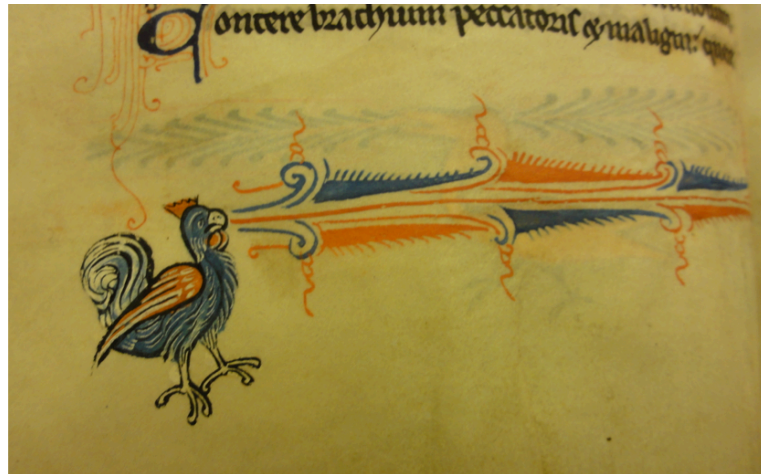 Contere brachium peccatoris & maligni: quer